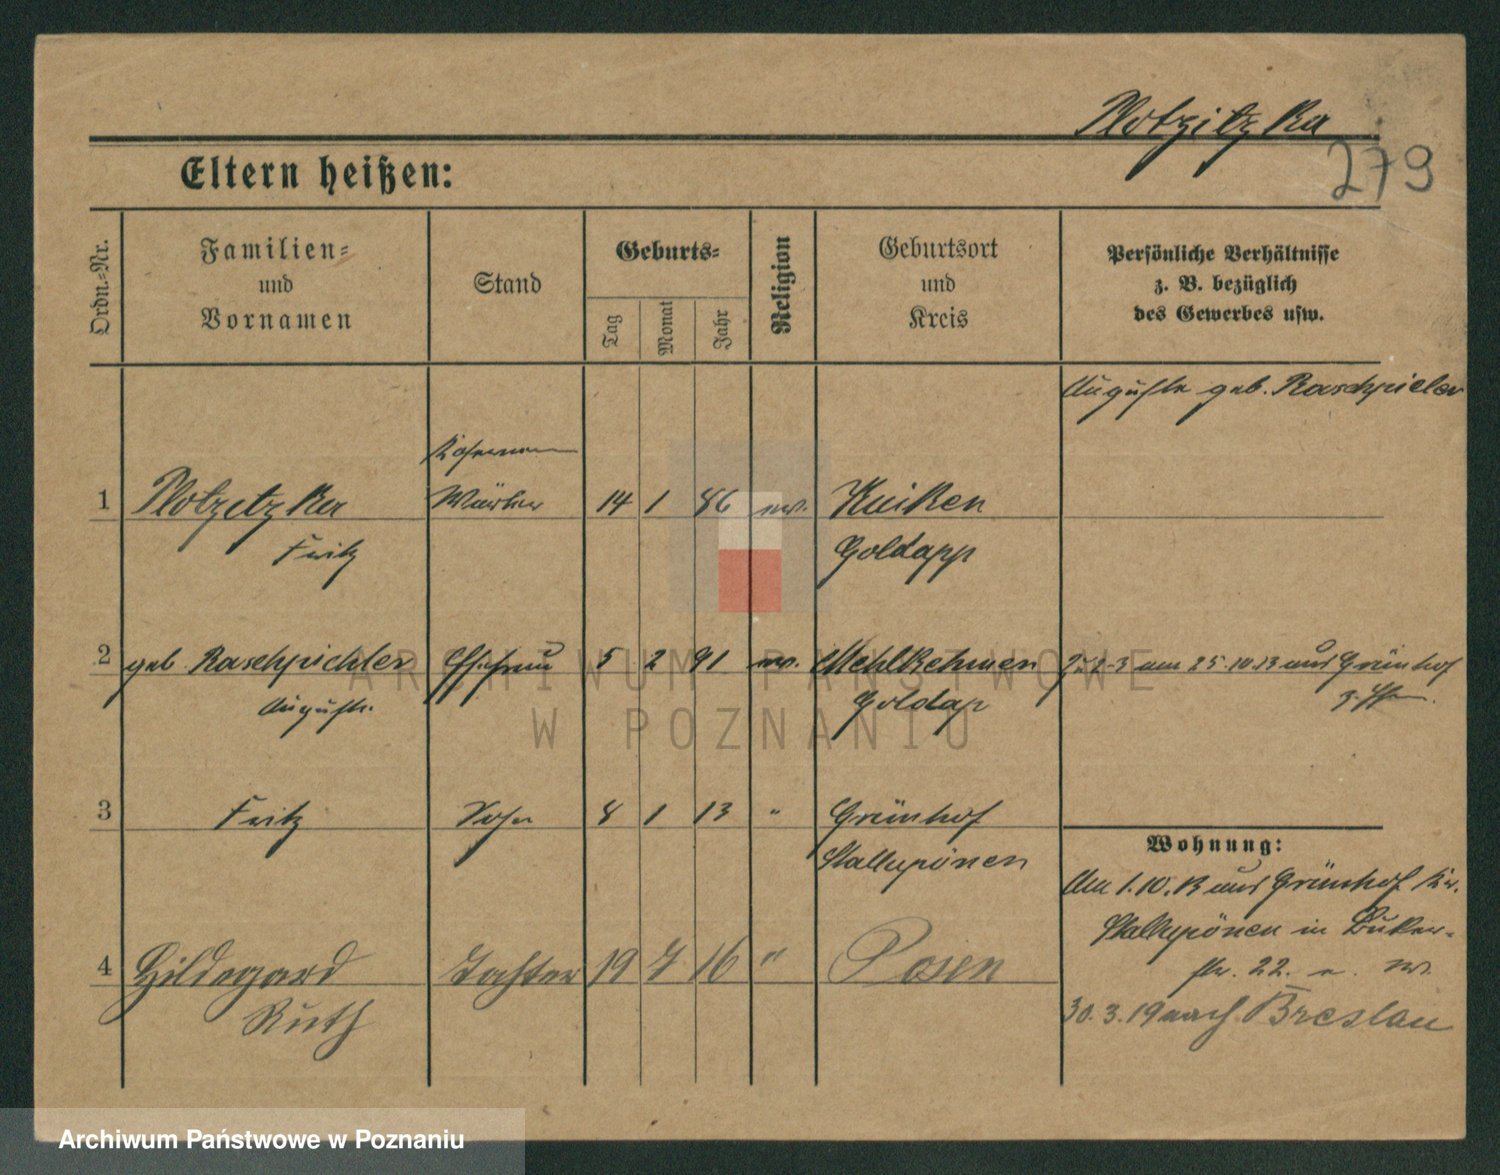 Plotzitzka
279
Eltern heißen:
Ordn.-Nr.
Familien-
und
Vornamen
Stand
Geburts-
Tag
Monat
Jahr
Religion
Geburtsort
und
Kreis
Persönliche Verhältnisse
z. B. bezüglich
des Gewerbes usw.
Auguste geb. Raschpieler
1 Plotzitzka 14 1 86 ev. Kuiken
Fritz Goldapp
2 geb. Raschpichler Ehefrau 5 2 91 ev. Mehlkehmen Zu 2-3 am 25.10.13 aus Grünhof
Auguste Goldap
3 Fritz Sohn 8 1 13 " Grünhof
Stallupönen
Wohnung:
Am 1.10.13 aus Grünhof Kr.
Stallupönen in Buker-
str. 22.
4 Hildegard Tochter 19 7 16 " Posen
Ruth
30.3.19 nach Breslau
ARCHIWUM PAŃSTWOWE
W POZNANIU
Archiwum Państwowe w Poznaniu